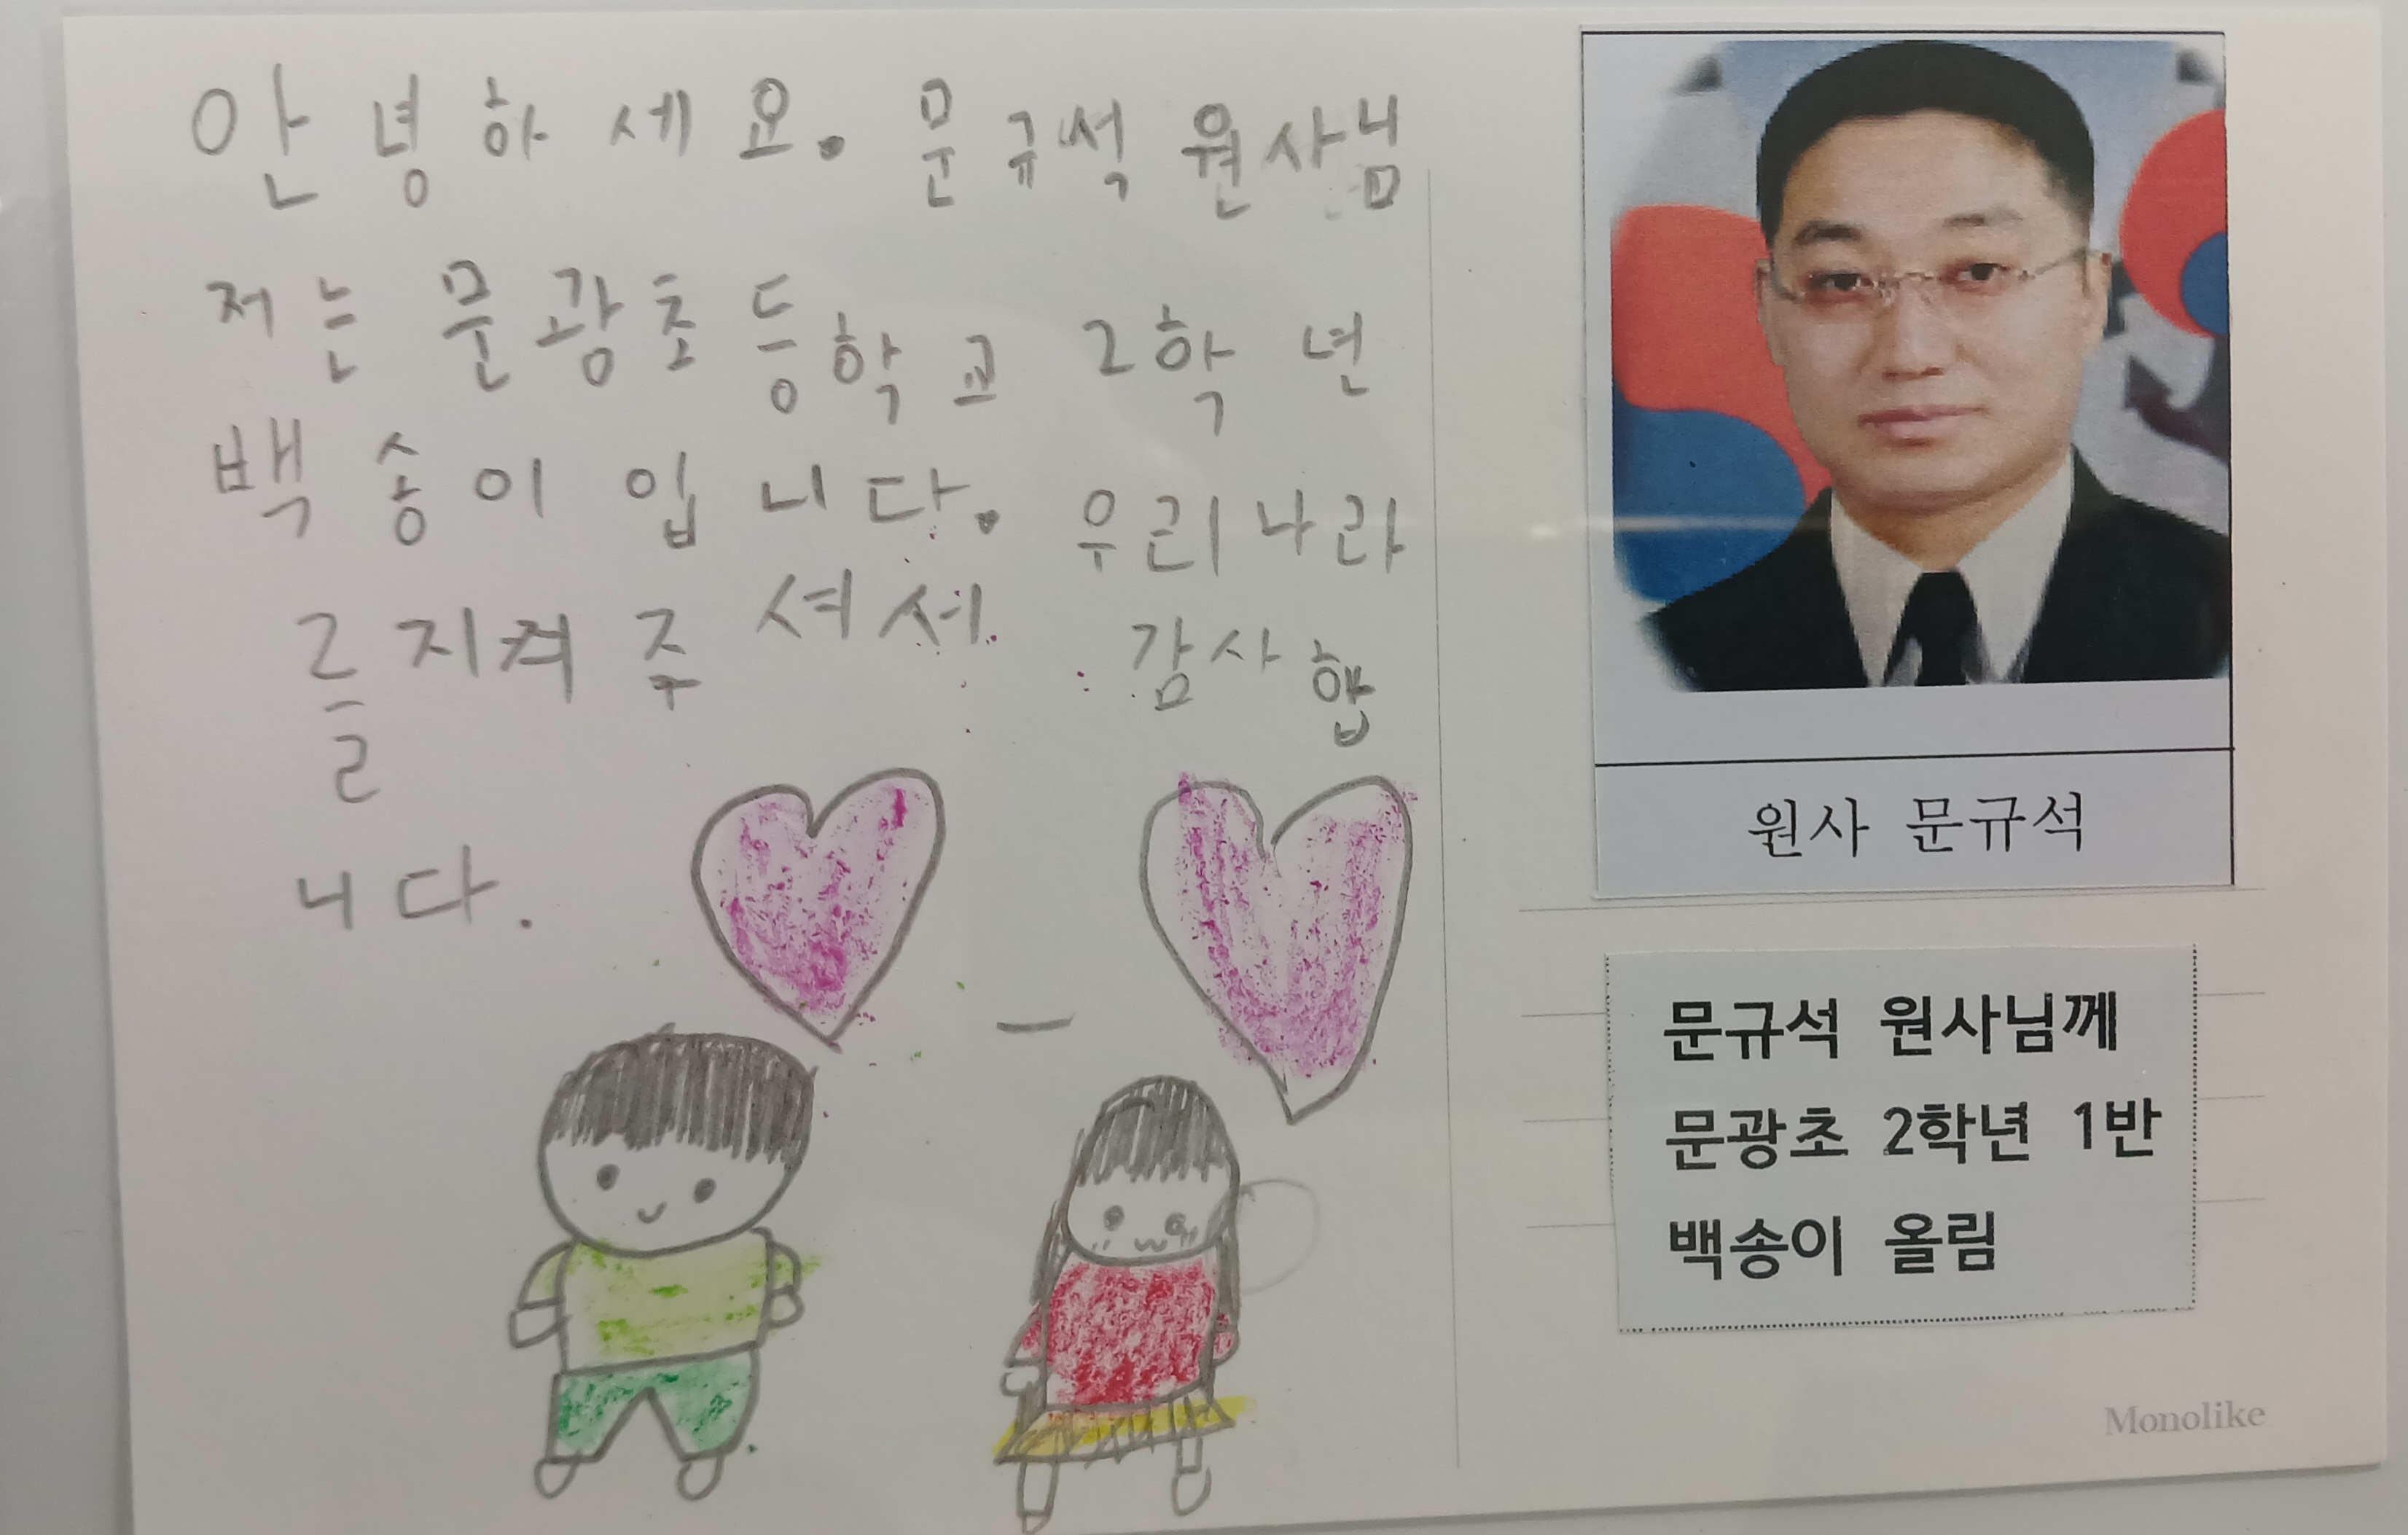 안녕하세요. 문규석 원사님
저는 문광초등학교 2학년
백송이입니다. 우리나라
를 지켜 주셔서 감사합
니다.
원사 문규석
문규석 원사님께
문광초 2학년 1반
백송이 올림
Monolike